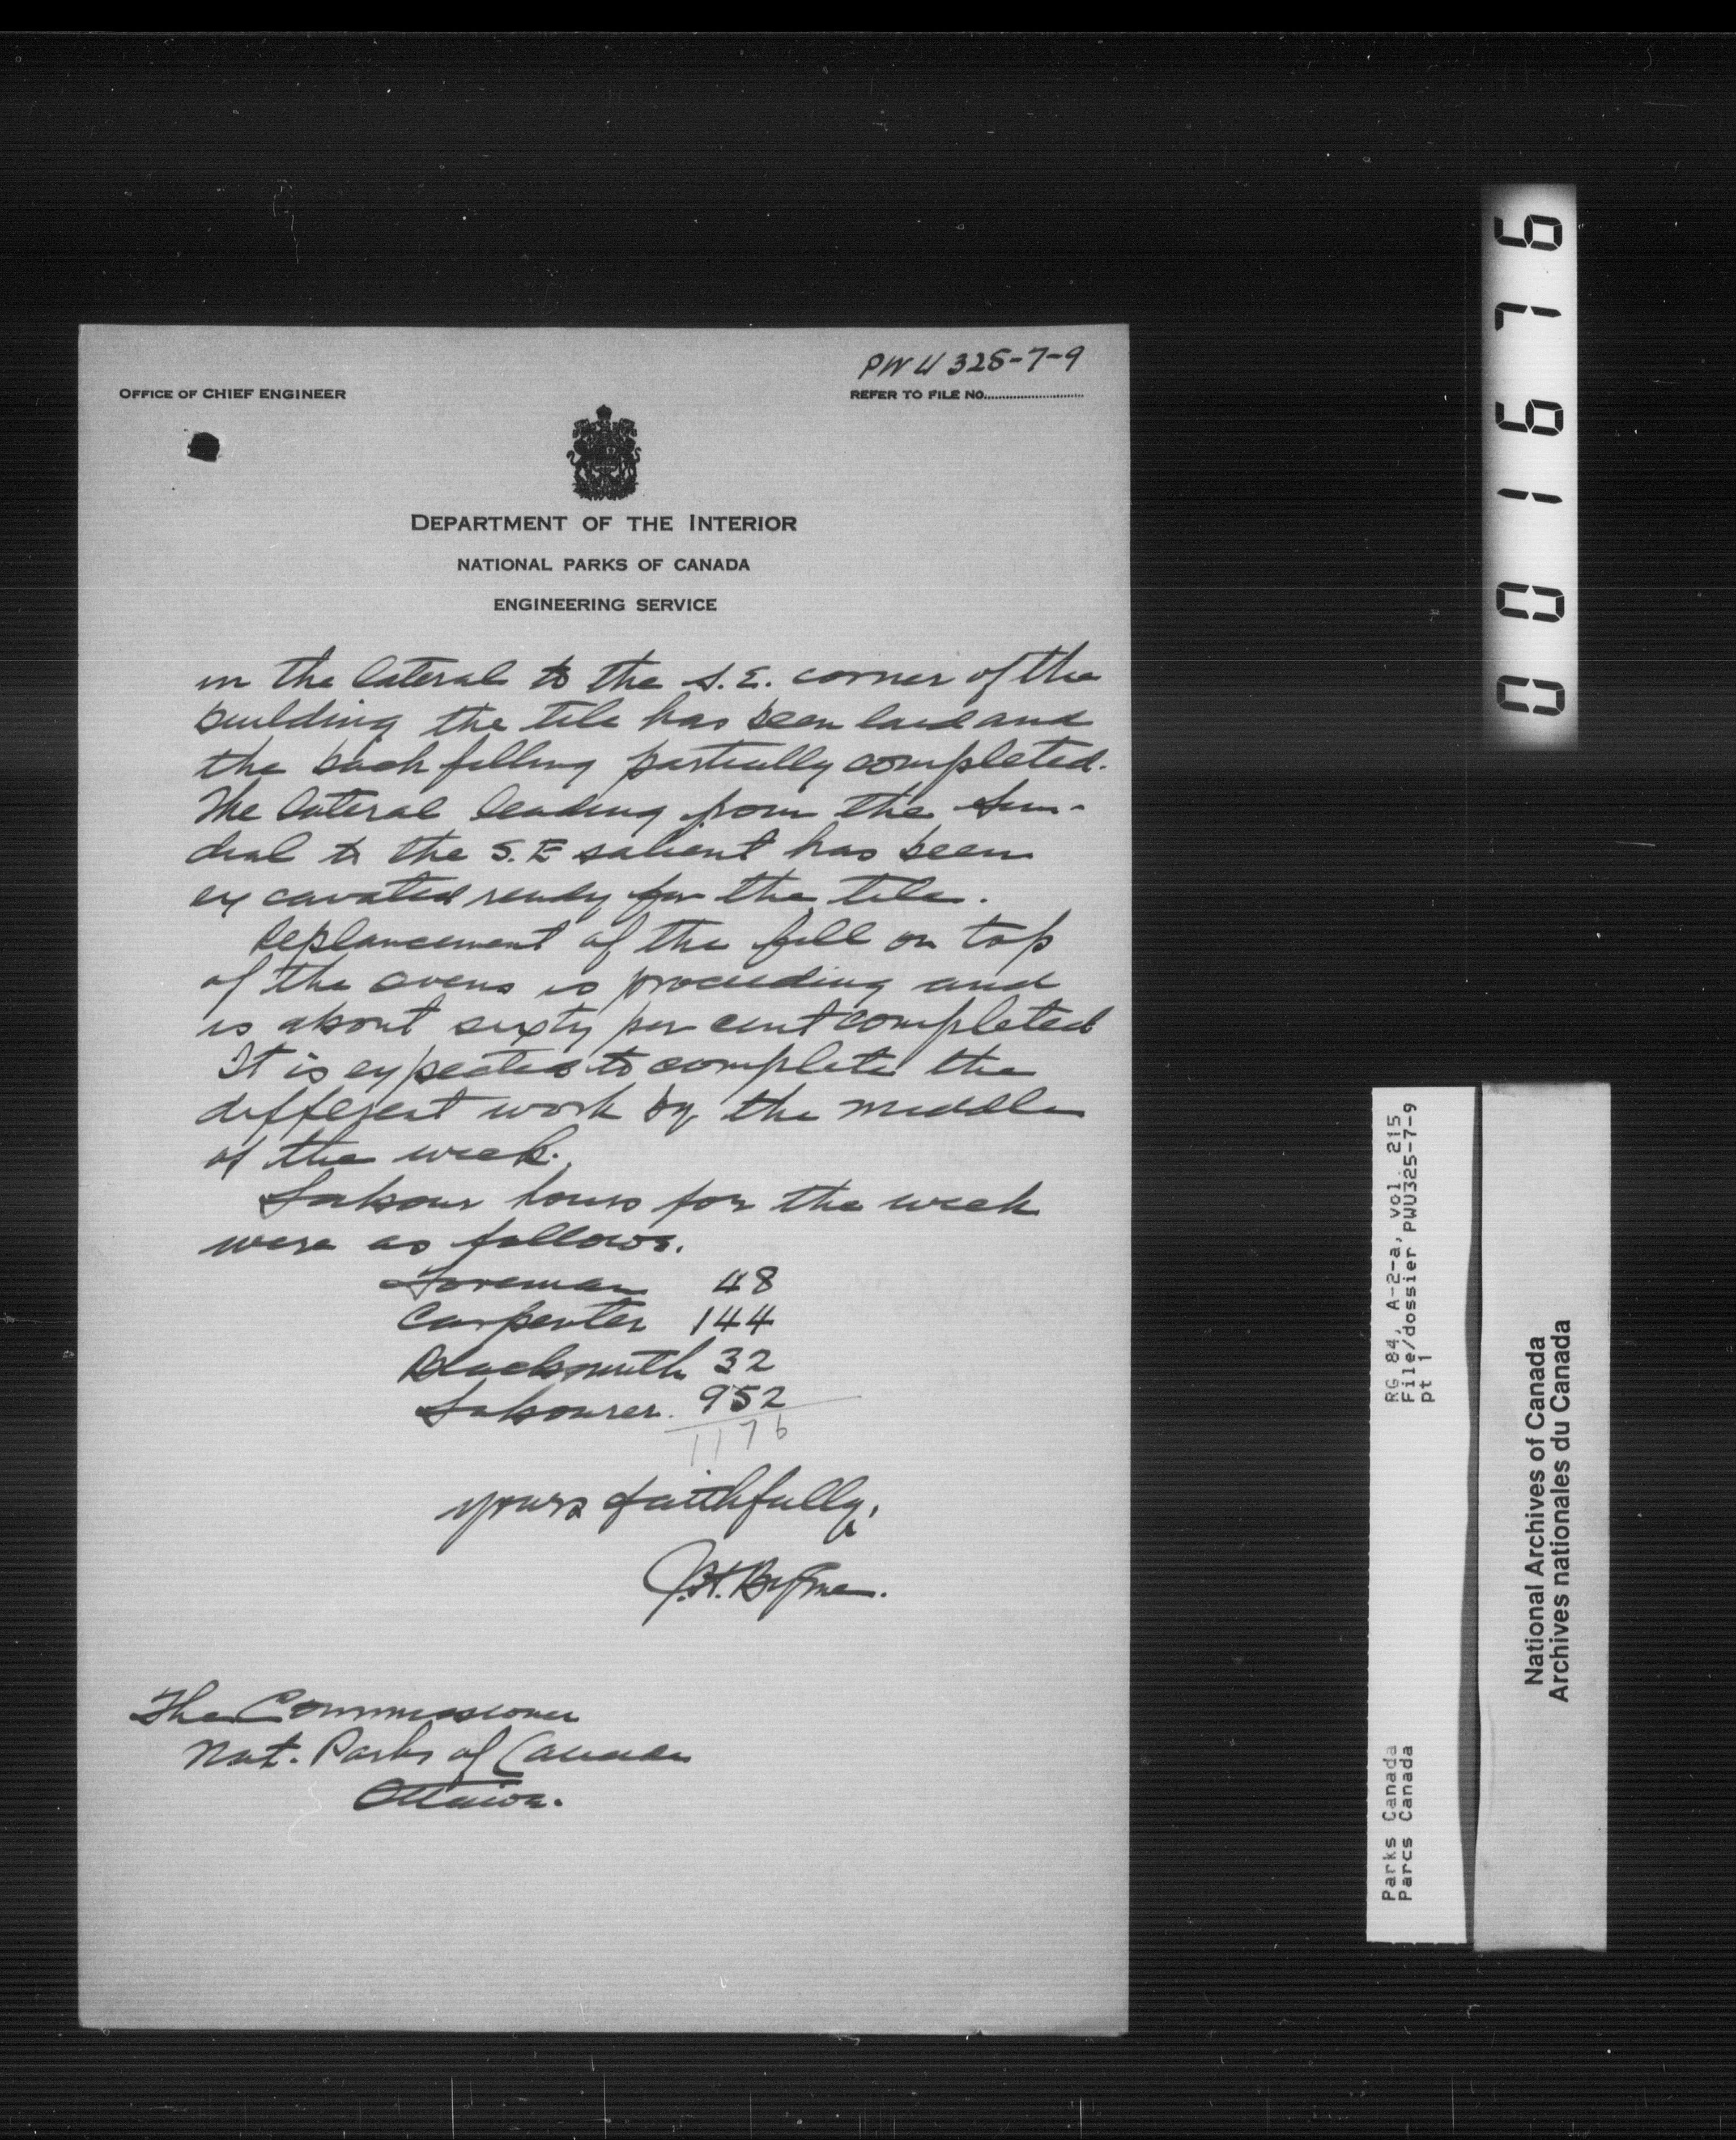 PWU 325-7-9
OFFICE OF CHIEF ENGINEER
REFER TO FILE NO.
DEPARTMENT OF THE INTERIOR
NATIONAL PARKS OF CANADA
ENGINEERING SERVICE
in the lateral to the S.E. corner of the
building the tile has been laid and
the back filling partially completed.
The lateral leading from the sun-
dial to the S.E salient has been
excavated ready for the tile.
Replancement of the fill on top
of the ovens is proceeding and
is about sixty per cent completed
It is expected to complete the
different work by the middle
of the week.
Labour hours for the week
were as follows.
Foreman 48
Carpenter 144
Blacksmith 32
Labourer. 952
1176
Yours faithfully,
J.H. Byrne.
The Commissioner
Nat. Parks of Canada
Ottawa.
001676
RG 84, A-2-a, vol. 215
File/dossier PWU325-7-9
pt 1
Parks Canada
Parcs Canada
National Archives of Canada
Archives nationales du Canada